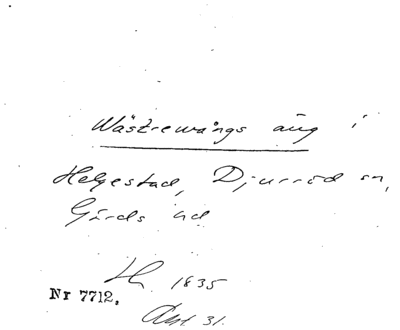 Wästrewångs äng i
Helgestad, Djurröd sn,
Gärds hd
1835
Nr 7712.
Akt. 31.